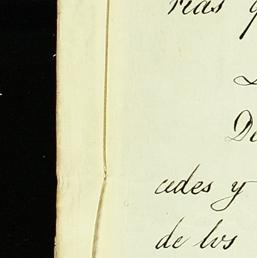 rias q
De
cedes y
de los